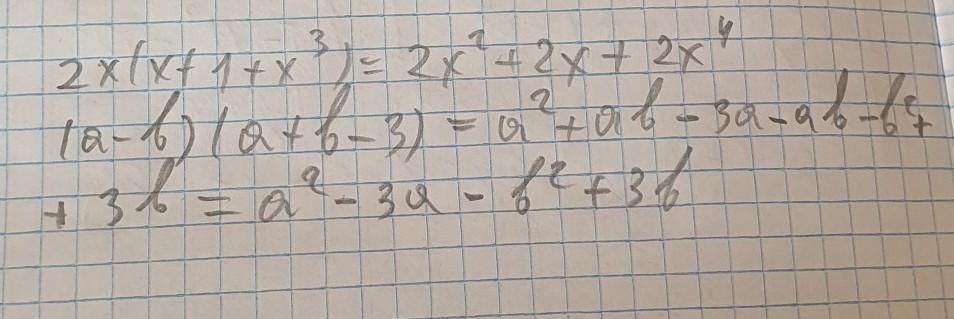 2x(x+1+x³)=2x²+2x+2x⁴
(a-b)(a+b-3)=a²+ab-3a-ab-b²+
+3b=a²-3a-b²+3b